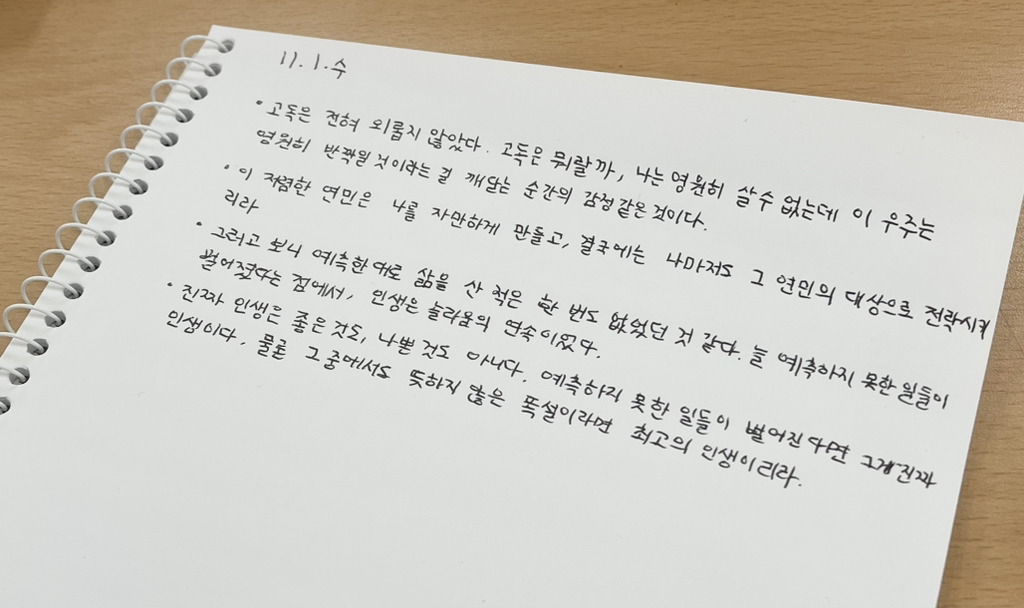 11. 1. 수
· 고독은 전혀 외롭지 않았다. 고독은 뭐랄까, 나는 영원히 살 수 없는데 이 우주는
영원히 반짝일 것이라는 걸 깨닫는 순간의 감정 같은 것이다.
· 이 저렴한 연민은 나를 자만하게 만들고, 결국에는 나마저도 그 연민의 대상으로 전락시키
리라
· 그러고 보니 예측한 대로 삶을 산 적은 한 번도 없었던 것 같다. 늘 예측하지 못한 일들이
벌어졌다는 점에서, 인생은 놀라움의 연속이었다.
· 진짜 인생은 좋은 것도, 나쁜 것도 아니다. 예측하지 못한 일들이 벌어진다면 그게 진짜
인생이다. 물론 그 중에서도 뜻하지 않은 폭설이라면 최고의 인생이리라.